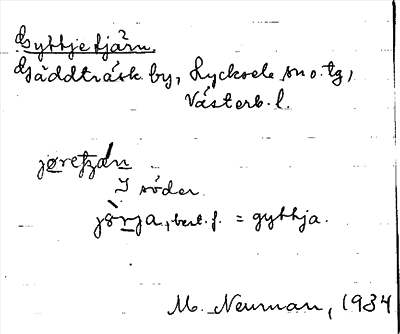 Gyttjetjärn
Gäddträsk by, Lycksele sn o. tg,
Västerb. l.
jøretjạn
I söder
jörja, best. f. = gyttja.
M. Neuman, 1934